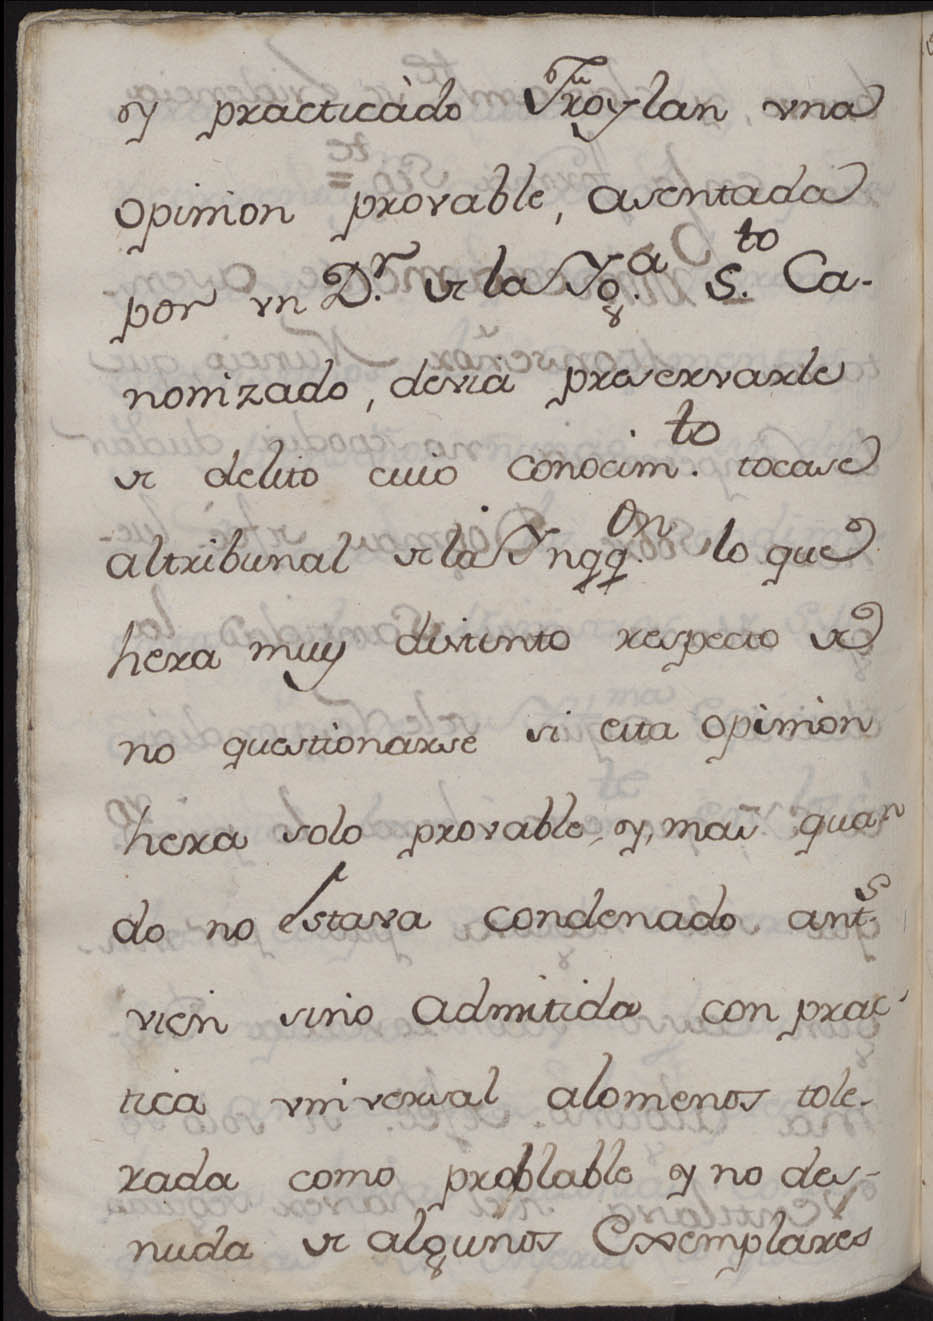 y practicàdo Froylan vna
opinion provable, asentada
por vn D.r de la Yg.a S.to Ca-
nonizado, devia preservarle
de delito cuio conocim.to tocase
al tribunal de la Ynqq.on lo que
hera muy distinto respecto de
no questionarse si esta opinion
hera solo provable, y, mas quan
do no estava condenado ant.s
vien sino admitida con prac-
tica vniversal alomenos tole-
rada como problable y no des-
nuda de algunos Exemplares